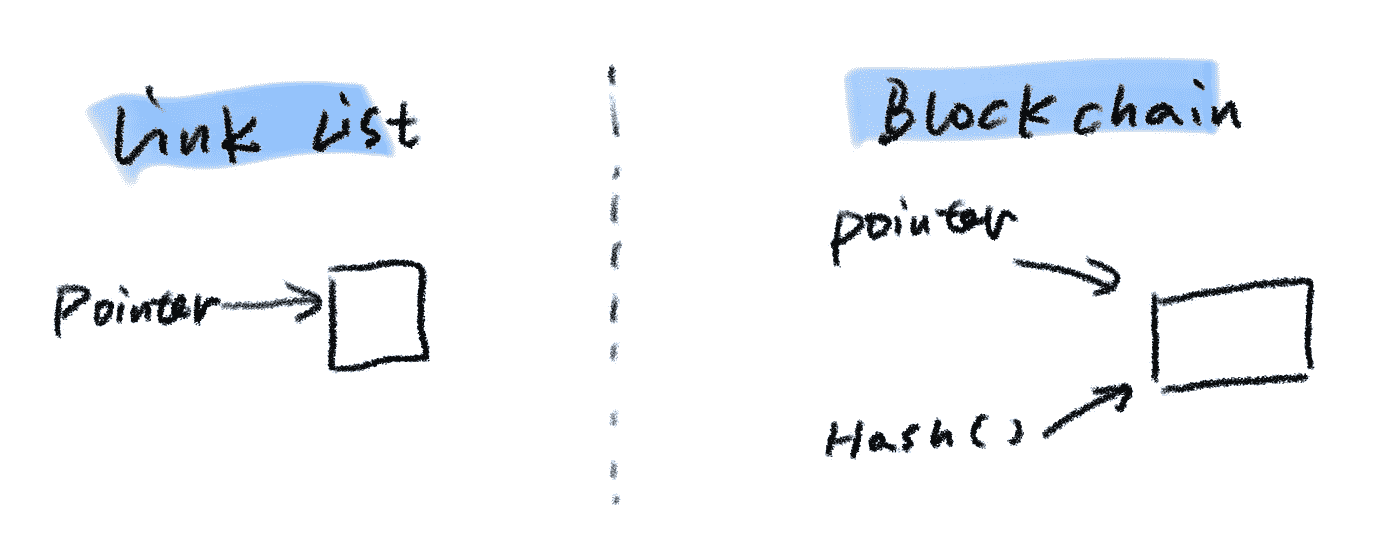 Link List
Pointer
Blockchain
pointer
Hash()